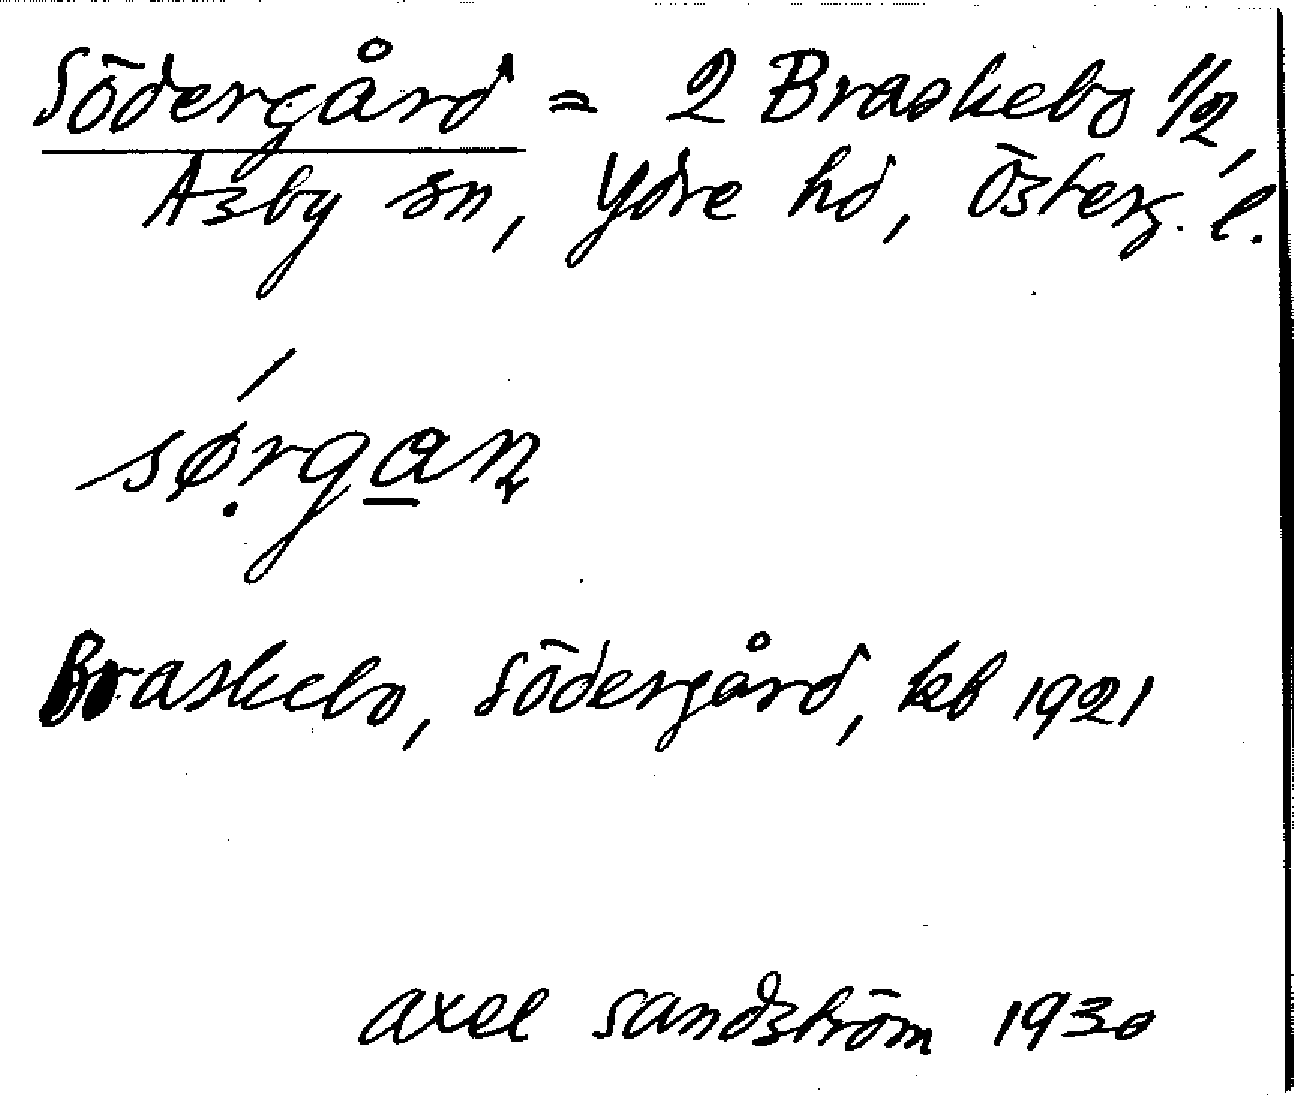 Södergård = 2 Braskebo 1/2,
Asby sn, Ydre hd, Österg. l.
sø̣rgan
Braskebo, Södergård, kb 1921
Axel Sandström 1930